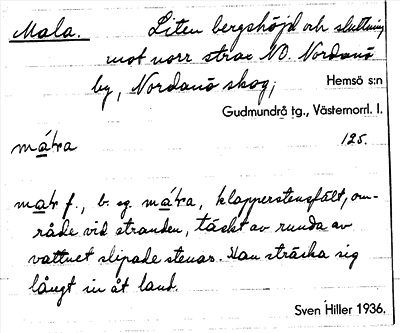 Mala. Liten bergshöjd och sluttning
mot norr strax NO. Nordanö
by, Nordanö skog;
Hemsö s:n
Gudmundrå tg., Västernorrl. l.
125.
f., b. sg. klapperstensfält, om-
råde vid stranden, täckt av runda av
vattnet slipade stenar. Kan sträcka sig
långt in åt land.
Sven Hiller 1936.